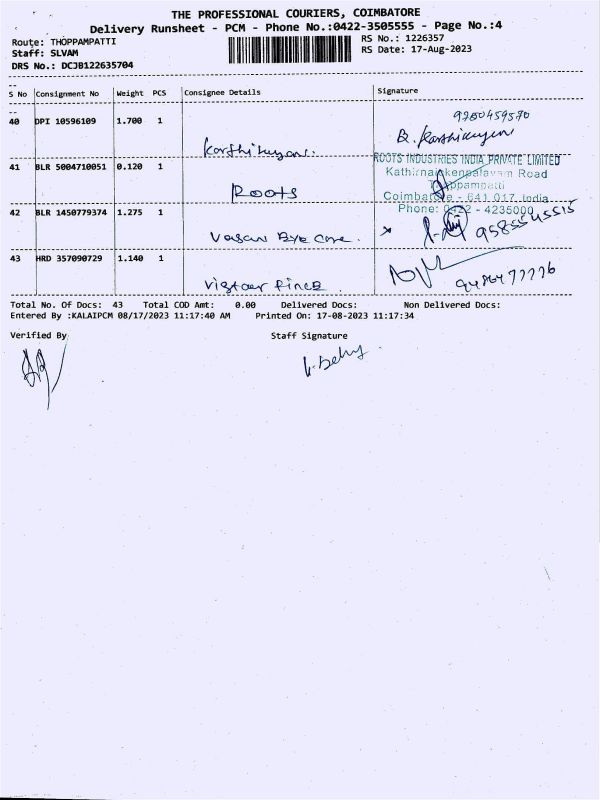 THE PROFESSIONAL COURIERS, COIMBATORE
Delivery Runsheet - PCM - Phone No.:0422-3505555 - Page No.:4
Route: THOPPAMPATTI
RS No.: 1226357
Staff: SLVAM
RS Date: 17-Aug-2023
DRS No.: DCJB122635704
S No Consignment No Weight PCS Consignee Details Signature
40 DPI 10596109 1.700 1
Karthikeyan.
B. Karthikeyan
41 BLR 5004710051 0.120 1
ROOTS
ROOTS INDUSTRIES INDIA PRIVATE LIMITED
Kathirnaickenpalayam Road
Thoppampatti
Coimbatore - 641 017. India
Phone: 0422 - 4235000
42 BLR 1450779374 1.275 1
Vasan Eye Care.
9585545515
43 HRD 357090729 1.140 1
Total No. Of Docs: 43 Total COD Amt: 0.00 Delivered Docs: Non Delivered Docs:
Entered By :KALAIPCM 08/17/2023 11:17:40 AM Printed On: 17-08-2023 11:17:34
Verified By
Staff Signature